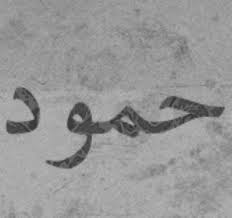 حمود